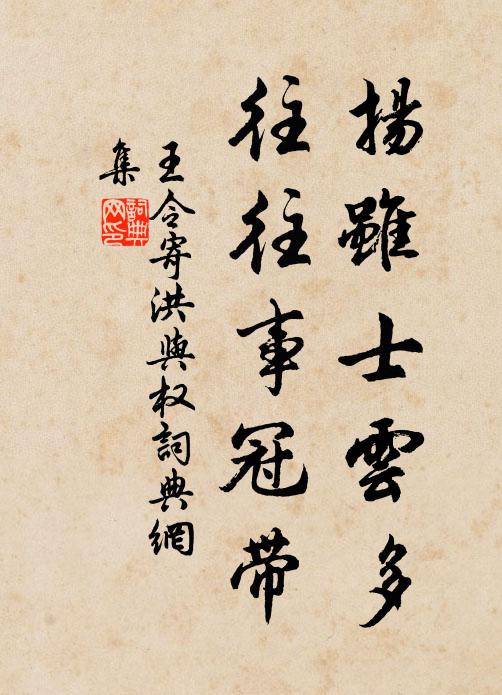 揚雖士雲多
往往事冠帶
王令寄洪與权詞典網
集
詞典
网印